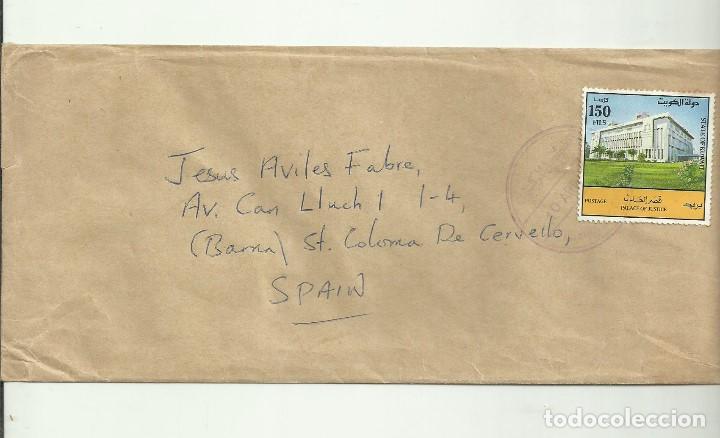 Jesus Aviles Fabre,
Av. Can Lluch 1 1-4,
(Barna) St. Coloma De Cervello,
SPAIN
دولة الكويت
150
FILS
STATE OF KUWAIT
قصر العدل
بريد
POSTAGE
PALACE OF JUSTICE
todocoleccion